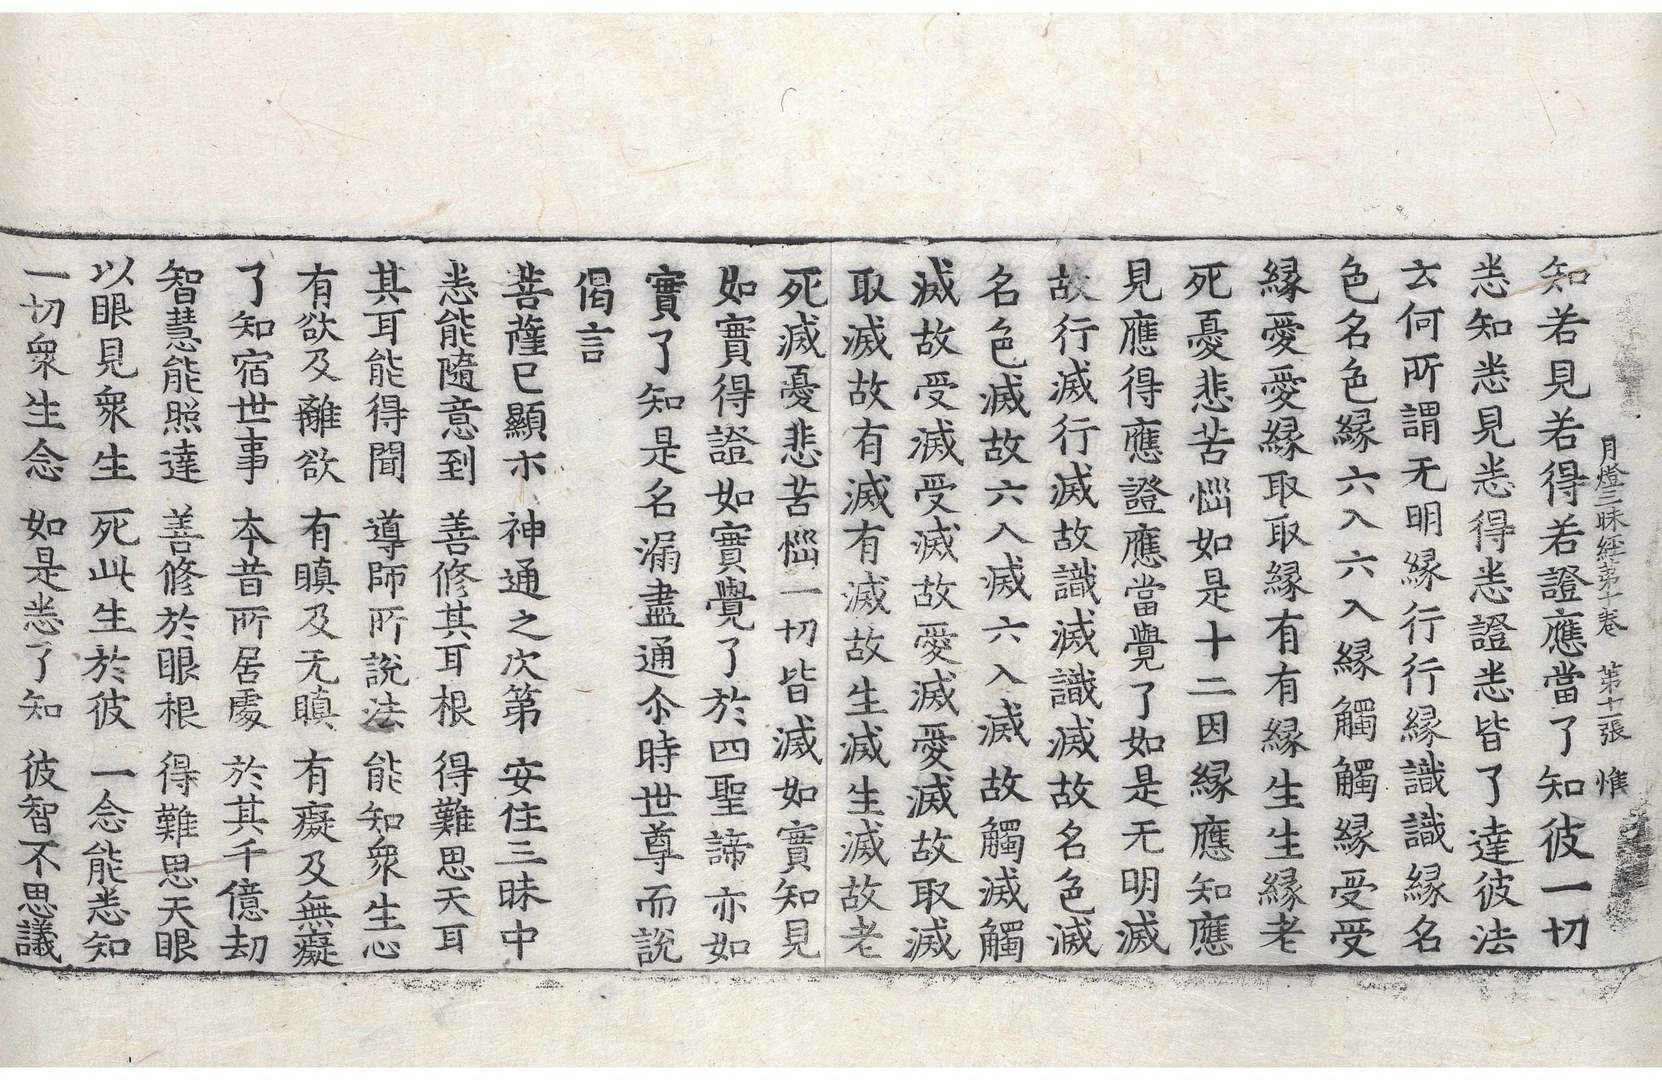 月燈三昧經第十卷　第十一張　惟
知若見若得若證應當了知彼一切
悉知悉見悉得悉證悉皆了達彼法
云何所謂无明緣行行緣識識緣名
色名色緣六入六入緣觸觸緣受受
緣愛愛緣取取緣有有緣生生緣老
死憂悲苦惱如是十二因緣應知應
見應得應證應當覺了如是无明滅
故行滅行滅故識滅識滅故名色滅
名色滅故六入滅六入滅故觸滅觸
滅故受滅受滅故愛滅愛滅故取滅
取滅故有滅有滅故生滅生滅故老
死滅憂悲苦惱一切皆滅如實知見
如實得證如實覺了於四聖諦亦如
實了知是名漏盡通尒時世尊而說
偈言
菩薩已顯示　神通之次第　安住三昧中
悉能隨意到　善修其耳根　得難思天耳
其耳能得聞　導師所說法　能知衆生心
有欲及離欲　有瞋及无瞋　有癡及無癡
了知宿世事　本昔所居處　於其千億劫
智慧能照達　善修於眼根　得難思天眼
以眼見衆生　死此生於彼　一念能悉知
一切衆生念　如是悉了知　彼智不思議